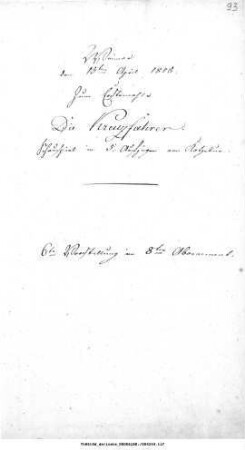 93
Weimar
den 13ten April 1818
Zum Erstenmahle
Die Kreuzfahrer
Schauspiel in 5 Aufzügen von Kotzebue.
6te Vorstellung im 8ten Abonnement.